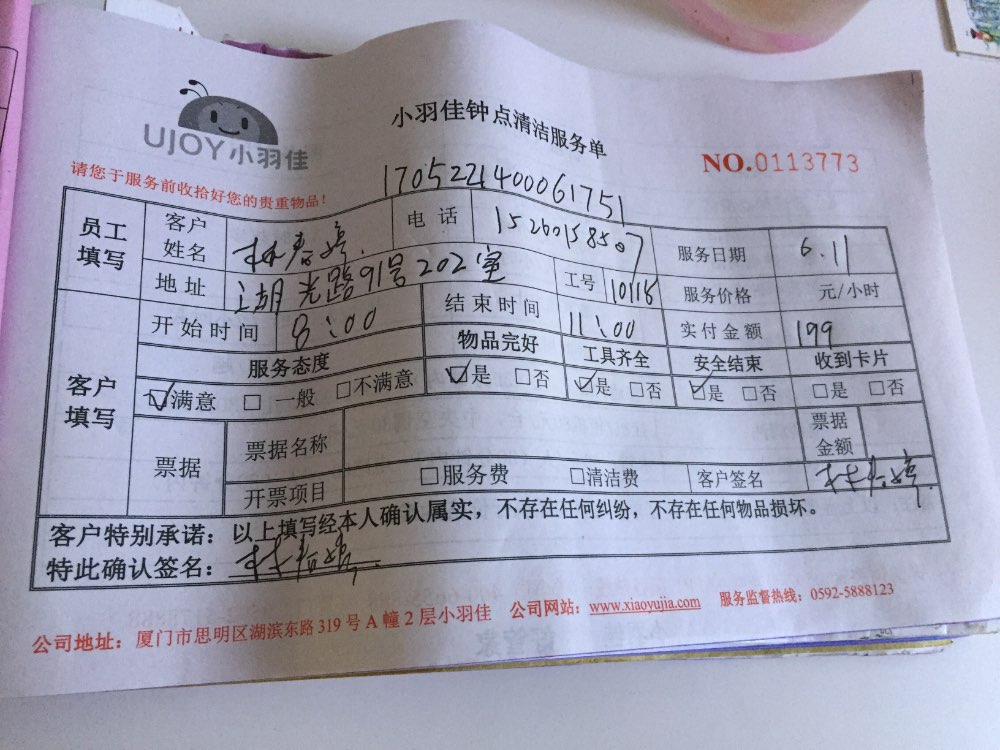 UJOY小羽佳
小羽佳钟点清洁服务单
NO.0113773
请您于服务前收拾好您的贵重物品！
1705221400061751
员工填写 客户姓名 林春婷 电话 15260158507 服务日期 6.11
地址 湖光路91号202室 工号 10116 服务价格 元/小时
客户填写 开始时间 8:00 结束时间 11:00 实付金额 199
服务态度 物品完好 工具齐全 安全结束 收到卡片
☑满意 □一般 □不满意 ☑是 □否 ☑是 □否 ☑是 □否 □是 □否
票据 票据名称 票据金额
开票项目 □服务费 □清洁费 客户签名 林春婷
客户特别承诺：以上填写经本人确认属实，不存在任何纠纷，不存在任何物品损坏。
特此确认签名：林春婷
公司地址：厦门市思明区湖滨东路319号A幢2层小羽佳 公司网站：www.xiaoyujia.com 服务监督热线：0592-5888123